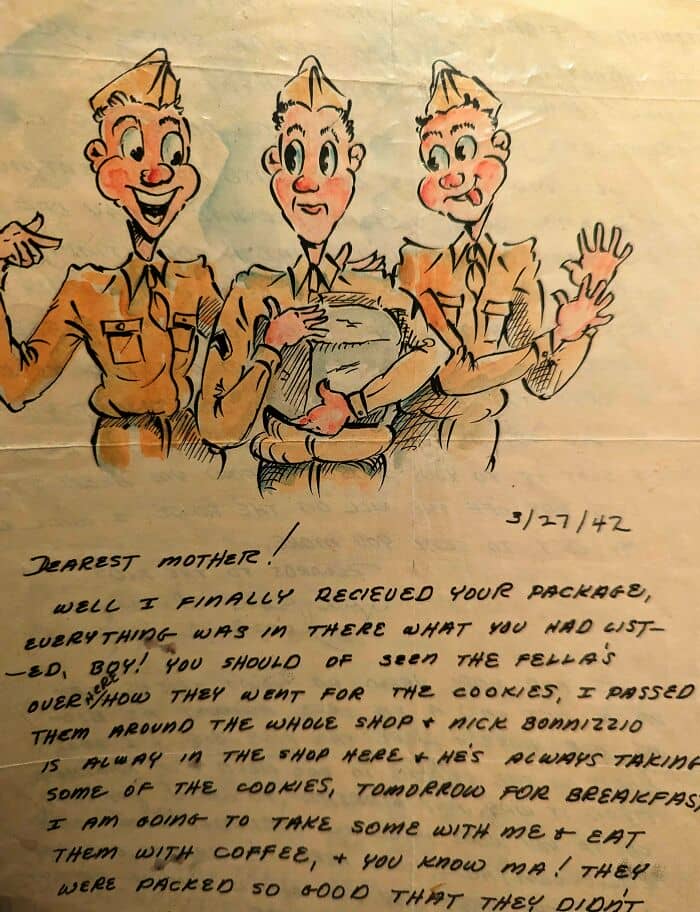 3/27/42
DEAREST MOTHER!
WELL I FINALLY RECIEVED YOUR PACKAGE,
EVERYTHING WAS IN THERE WHAT YOU HAD LIST-
-ED, BOY! YOU SHOULD OF SEEN THE FELLA'S
OVER HERE/HOW THEY WENT FOR THE COOKIES, I PASSED
THEM AROUND THE WHOLE SHOP & NICK BONNIZZIO
IS ALWAY IN THE SHOP HERE & HE'S ALWAYS TAKING
SOME OF THE COOKIES, TOMORROW FOR BREAKFAS
I AM GOING TO TAKE SOME WITH ME & EAT
THEM WITH COFFEE, & YOU KNOW MA! THEY
WERE PACKED SO GOOD THAT THEY DIDN'T